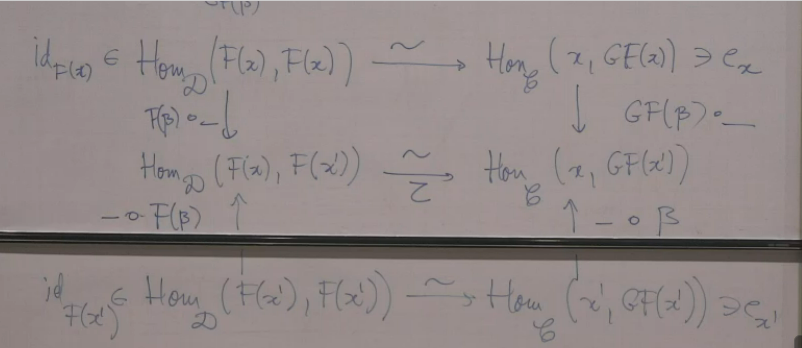 id_{F(x)} ∈ Hom_𝒟 (F(x), F(x)) ⥲ Hom_𝒞 (x, GF(x)) ∋ e_x
F(β)∘_ ↓ ↓ GF(β)∘_
Hom_𝒟 (F(x), F(x')) ⥲ Hom_𝒞 (x, GF(x'))
_∘F(β) ↑ τ ↑ _∘β
id_{F(x')} ∈ Hom_𝒟 (F(x'), F(x')) ⥲ Hom_𝒞 (x', GF(x')) ∋ e_{x'}